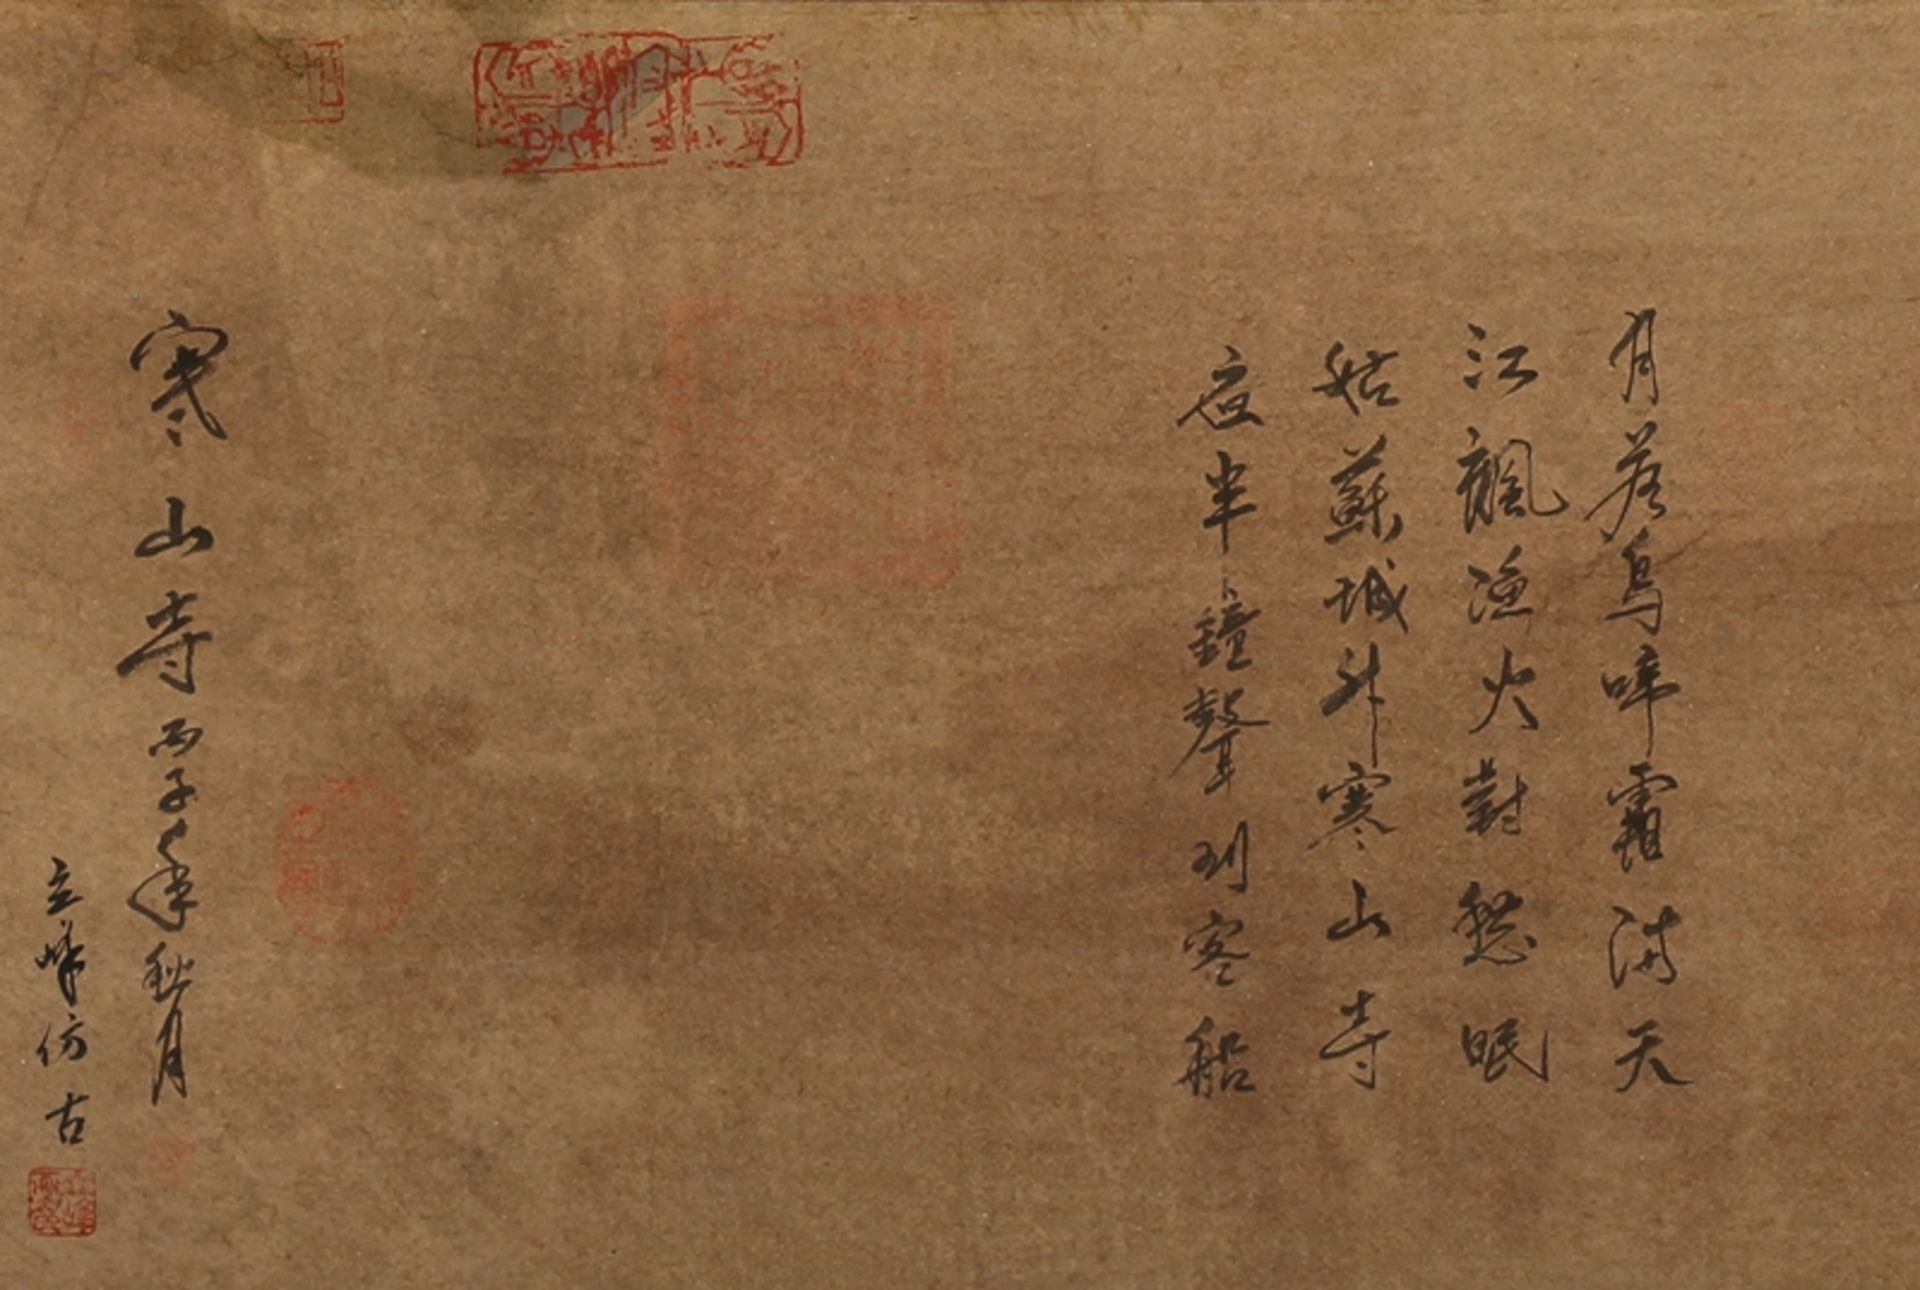 月落烏啼霜満天
江楓漁火對愁眠
姑蘇城外寒山寺
夜半鐘聲到客船
寒山寺丙子年秋月
立峰仿古